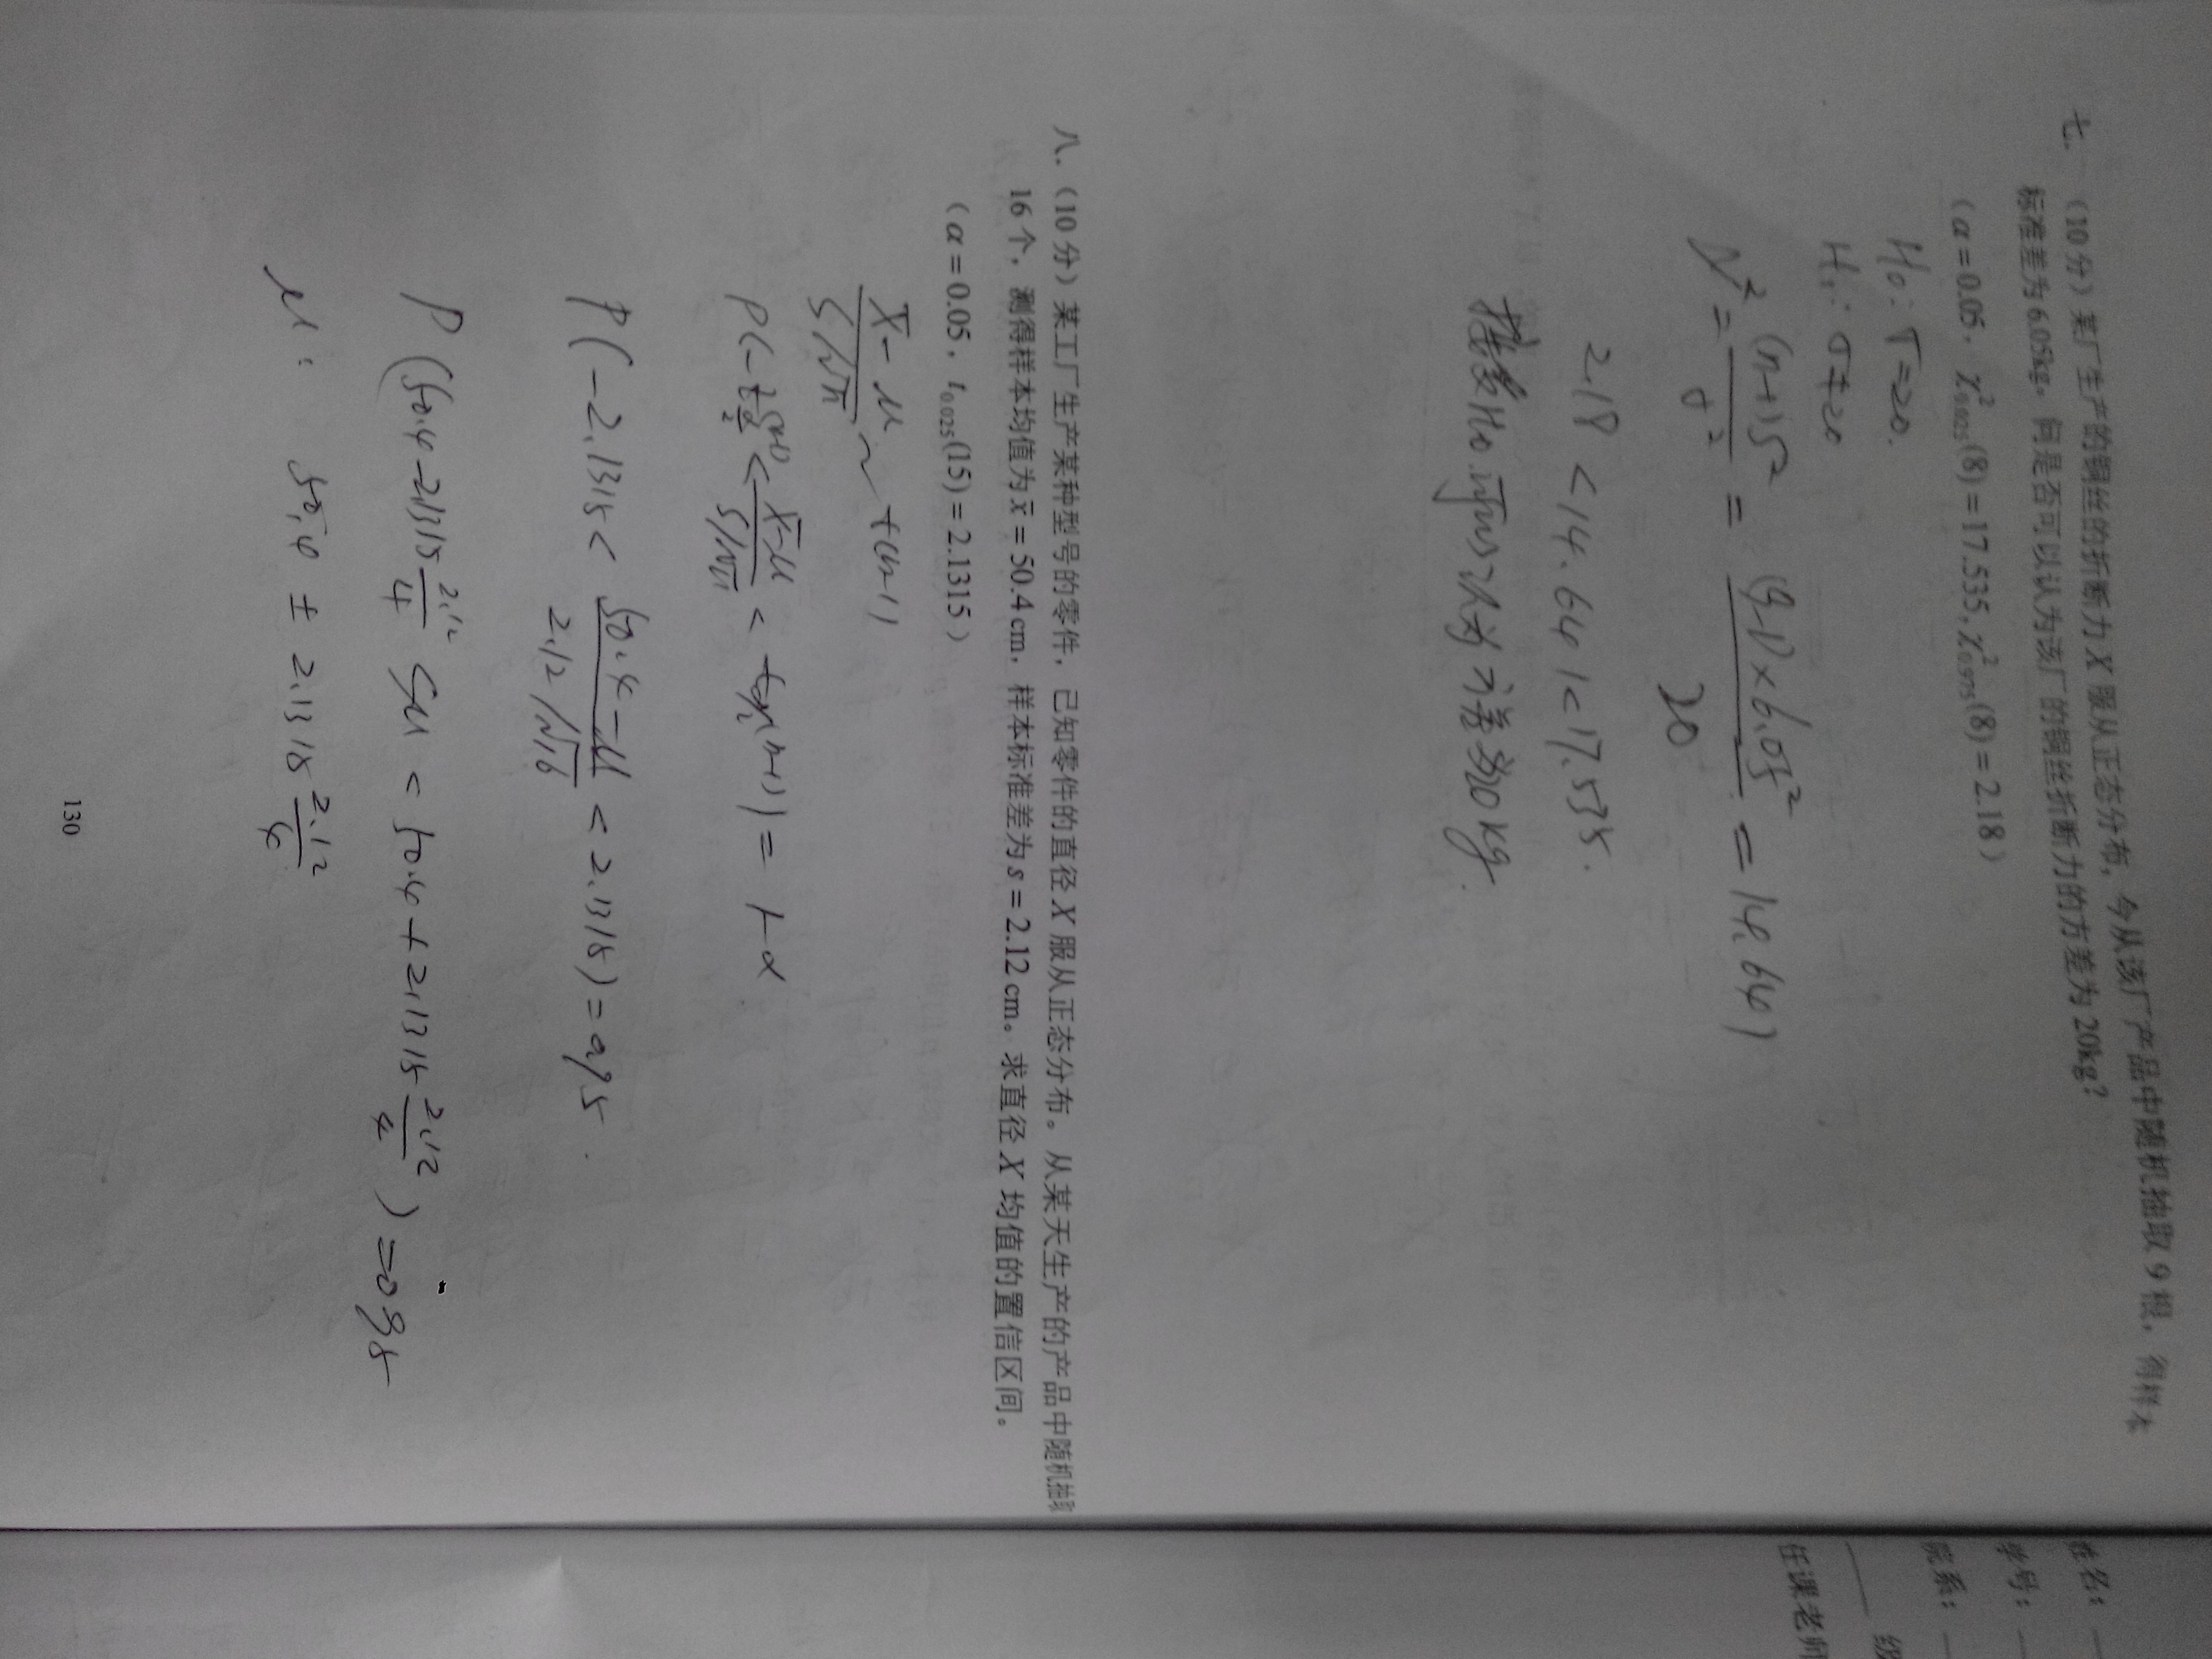 七.（10分）某厂生产的铜丝的折断力X服从正态分布，今从该厂产品中随机抽取9根，得样本
标准差为6.05kg。问是否可以认为该厂的铜丝折断力的方差为20kg?
（α=0.05，χ²₀.₀₂₅(8)=17.535, χ²₀.₉₇₅(8)=2.18）
H₀: σ=20.
H₁: σ≠20
χ² = (n-1)S²/σ² = (9-1)×6.05²/20 = 14.641
2.18 < 14.641 < 17.535.
接受H₀.可以认为方差为20kg.
八.（10分）某工厂生产某种型号的零件，已知零件的直径X服从正态分布。从某天生产的产品中随机抽取
16个，测得样本均值为x̄=50.4 cm，样本标准差为s=2.12 cm。求直径X均值的置信区间。
（α=0.05，t₀.₀₂₅(15)=2.1315）
(X̄-μ)/(S/√n) ~ t(n-1)
P(-t_{α/2}(n-1) < (X̄-μ)/(S/√n) < t_{α/2}(n-1)) = 1-α
P(-2.1315 < (50.4-μ)/(2.12/√16) < 2.1315) = 0.95.
P(50.4-2.1315 2.12/4 < μ < 50.4+2.1315 2.12/4) = 0.95
μ: 50.4 ± 2.1315 2.12/4
130
姓名：
学号：
院系：
级
任课老师